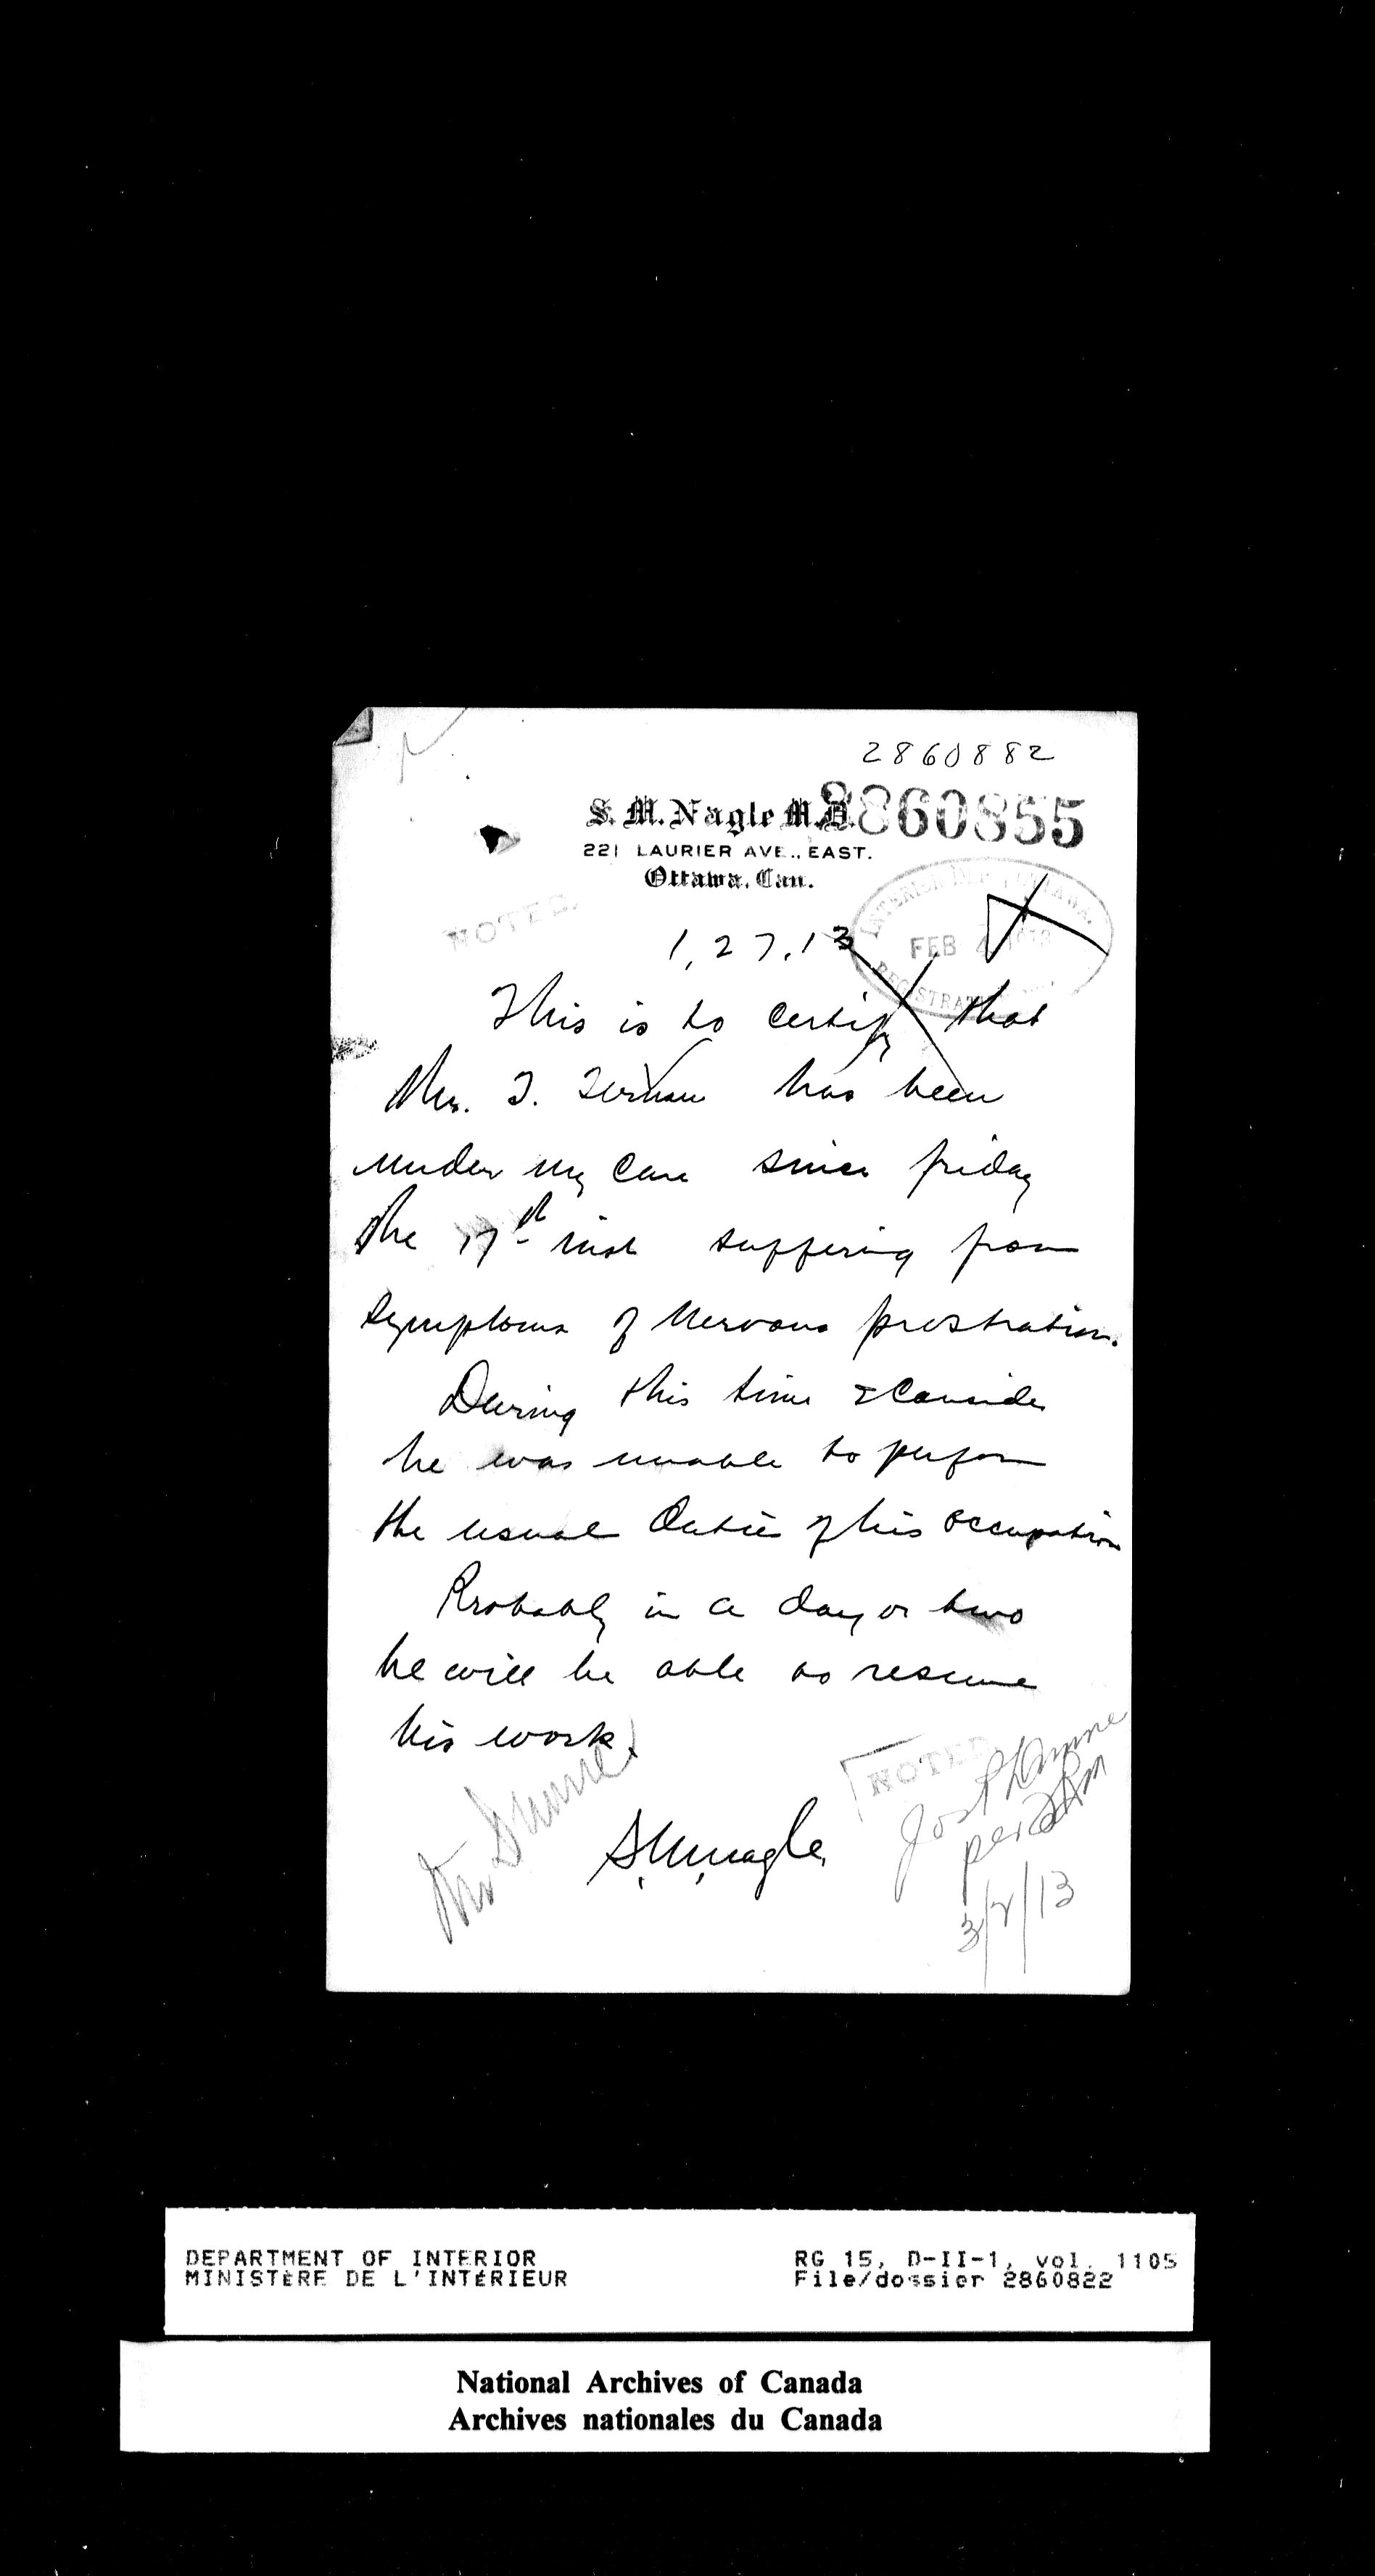 2860882
S. M. Nagle M.D.
2860855
221 LAURIER AVE., EAST.
Ottawa, Can.
NOTED
INTERIOR DEPT OTTAWA
FEB 4 1913
REGISTRATION
1, 27, 13
This is to certify that
Mr. T. has been
under my care since friday
the 17th inst suffering from
symptoms of nervous prostration.
During this time I consider
he was unable to perform
the usual duties of his occupation
Probably in a day or two
he will be able to resume
his work.
NOTED
S. M. Nagle
Mr Dunne
Jos P Dunne
per
3/2/13
DEPARTMENT OF INTERIOR
MINISTÈRE DE L'INTÉRIEUR
RG 15, D-II-1, vol. 1105
File/dossier 2860822
National Archives of Canada
Archives nationales du Canada